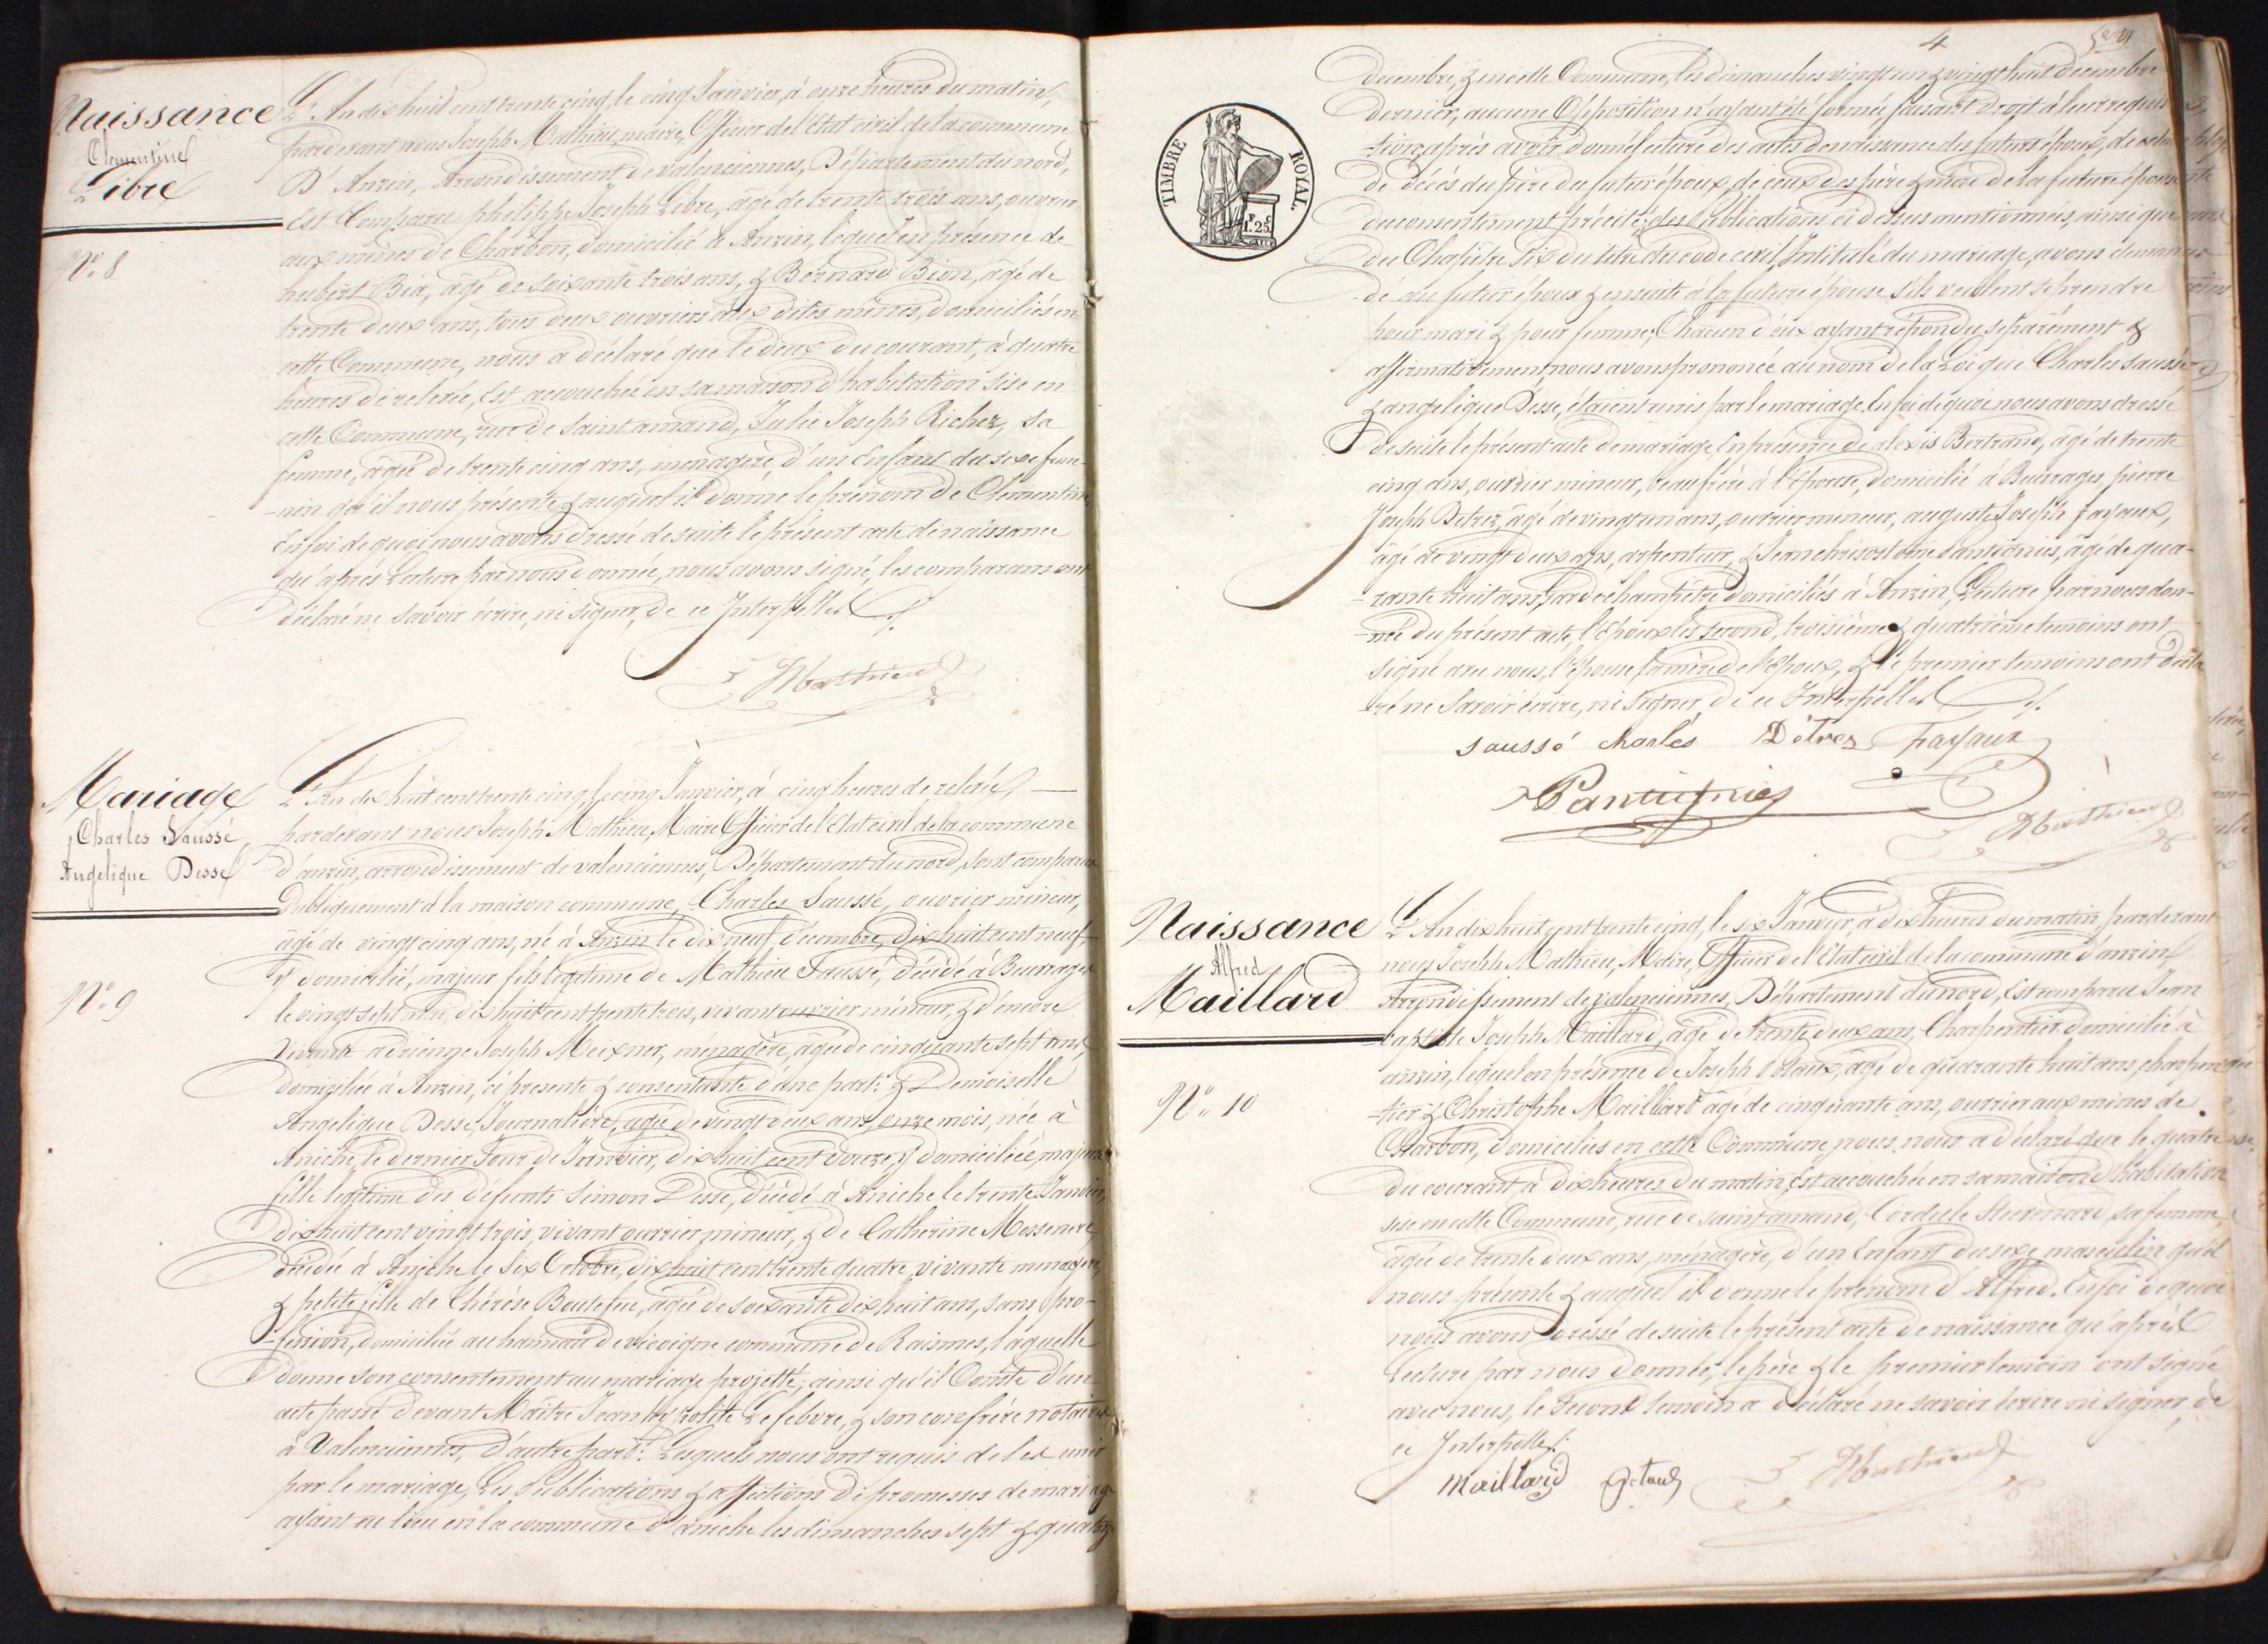 Naissance
Clementine
Libre
N.º 8
L'An dix huit cent trente cinq, le cinq Janvier, à onze heures du matin,
pardevant nous Joseph Mathieu, maire, Officier de l'Etat civil de la commune
D'Anzin, Arrondissement de valenciennes, Département du nord,
Est Comparu philippe Joseph Libre, âgé de trente trois ans, ouvrier
aux mines de Charbon, domicilié à Anzin, lequel en présence de
hubert Bia, âgé de soixante trois ans, & Bernard Bion, âgé de
trente deux ans, tous deux ouvriers aux dites mines, domiciliés en
cette Commune, nous a déclaré que le deux du courant, à quatre
heures de relevée, Est accouchée en sa maison d'habitation sise en
cette Commune, rue de Saint amand, Julie Joseph Richez, sa
femme, âgée de trente cinq ans, menagère, d'un Enfant du sexe femi-
-nin qu'il nous présente & auquel il donne le prénom de Clementine
En foi de quoi nous avons dressé de suite le présent acte de naissance
qu'après Lecture par nous donnée, nous avons signé, les comparans ont
déclaré ne savoir écrire, ni signer, de ce Interpellés
J Mathieu
Mariage
Charles Saussé
Angelique Dessé
N.º 9
L'An dix huit cent trente cinq, le cinq Janvier, à cinq heures de relevée,
pardevant nous Joseph Mathieu, Maire Officier de l'Etat civil de la commune
d'anzin, arrondissement de valenciennes, Département du nord, sont comparus
Publiquement à la maison commune, Charles Saussé, ouvrier mineur,
âgé de vingt cinq ans, né à Anzin le dix neuf décembre, dix huit cent neuf,
y domicilié, majeur fils légitime de Mathieu Saussé, décédé à Beuvrages
le vingt sept mai, dix huit cent trente trois, vivant ouvrier mineur, & d'encore
vivante adrienne Joseph Meixner, ménagère, âgée de cinquante sept ans,
domiciliée à Anzin, ci presente & consentante d'une part: & Demoiselle
Angelique Dessé, Journalière, agée de vingt deux ans, onze mois, née à
Aniche, le dernier Jour de Janvier, dix huit cent douze, y domiciliée, majeure
fille legitime des défunts Simon Dessé, décédé à Aniche le trente Janvier,
dix huit cent vingt trois, vivant ouvrier mineur, & de Catherine
décédée à Aniche le Six Octobre, dix huit cent trente quatre vivante menagère,
& petite fille de Thérèse Boutefeu, agée de soixante dix huit ans, sans pro-
-fession, domiciliée au hameau de vicoigne commune de Raismes, laquelle
donne son consentement au mariage projetté, ainsi qu'il Conste d'un
acte passé devant Maître Jean hypolite Lefebvre, & son confrère notaires
à Valenciennes, d'autre part: Lesquels nous ont requis de les unir
par le mariage, Les Publications & affections de promesses de mariage
ayant eu lieu en la commune d'aniche les dimanches sept & quatorze
4
TIMBRE ROYAL
1.25
decembre, & en cette Commune, les dimanches vingt un & vingt huit decembre
dernier, aucune Opposition n'ayant été formée faisant droit à leur requisi
-tion, après avoir donné lecture des actes de naissance des futurs époux, de celui
de décès du père du futur époux, de ceux des père & mère de la future épouse
du consentement précité, des Publications ci dessus mentionnées, ainsi que
du Chapitre Six du titre du code civil, Intitulé du mariage, avons deman
-dé au futur époux & ensuite à la future épouse s'ils veulent se prendre
pour mari & pour femme; Chacun d'eux ayant répondu séparément &
affirmativement, nous avons prononcé au nom de la Loi que Charles Saussé
& angelique Dessé, étaient unis par le mariage. En foi de quoi nous avons dressé
de suite le présent acte de mariage, En présence de alexis Bertrand, âgé de trente
cinq ans, ouvrier mineur, beau frère à l'Epouse, domicilié à Beuvrages, pierre
Joseph Detrez, âgé de vingt un ans, ouvrier mineur, auguste Joseph Fayaux,
âgé de vingt deux ans, arpenteur, & Jean chrisostome Pantignies, âgé de qua-
-rante huit ans, Garde champêtre domiciliés à Anzin, Lecture par nous don-
-née du présent acte, l'Epoux les second, troisième & quatrième temoins ont
signé avec nous, l'épouse, la mère de l'Epoux, & le premier temoins ont décla
-ré ne Savoir écrire, ni signer, de ce Interpellés
saussé charles Détrez Fayaux
Pantignies
J Mathieu
Naissance
Alfred
Maillard
N.º 10
L'An dix huit cent trente cinq, le six Janvier, à dix heures du matin, pardevant
nous Joseph Mathieu, Maire, Officier de l'Etat civil de la commune d'anzin,
Arrondissement de valenciennes, Département du nord, Est comparu Jean
Baptiste Joseph Maillard, âgé de trente deux ans, Charpentier domicilié à
anzin, lequel en présence de Joseph âgé de quarante huit ans, charpen
-tier & Christophe Mailliard âgé de cinquante ans, ouvrier aux mines de
Charbon, domiciliés en cette Commune, nous nous a déclaré que le quatre
du courant, à dix heures du matin, Est accouchée en sa maison d'habitation
sise en cette Commune, rue de saint amand, Cordule sa femme,
âgée de trente deux ans, ménagère, d'un Enfant du sexe masculin qu'il
nous présente & auquel il donne le prénom d'Alfred. En foi de quoi
nous avons dressé de suite le présent acte de naissance qu'après
Lecture par nous donnée, le père & le premier temoin ont signé
avec nous, le second temoin a déclaré ne savoir écrire ni signer, de
ce Interpellé:
Maillard
J Mathieu